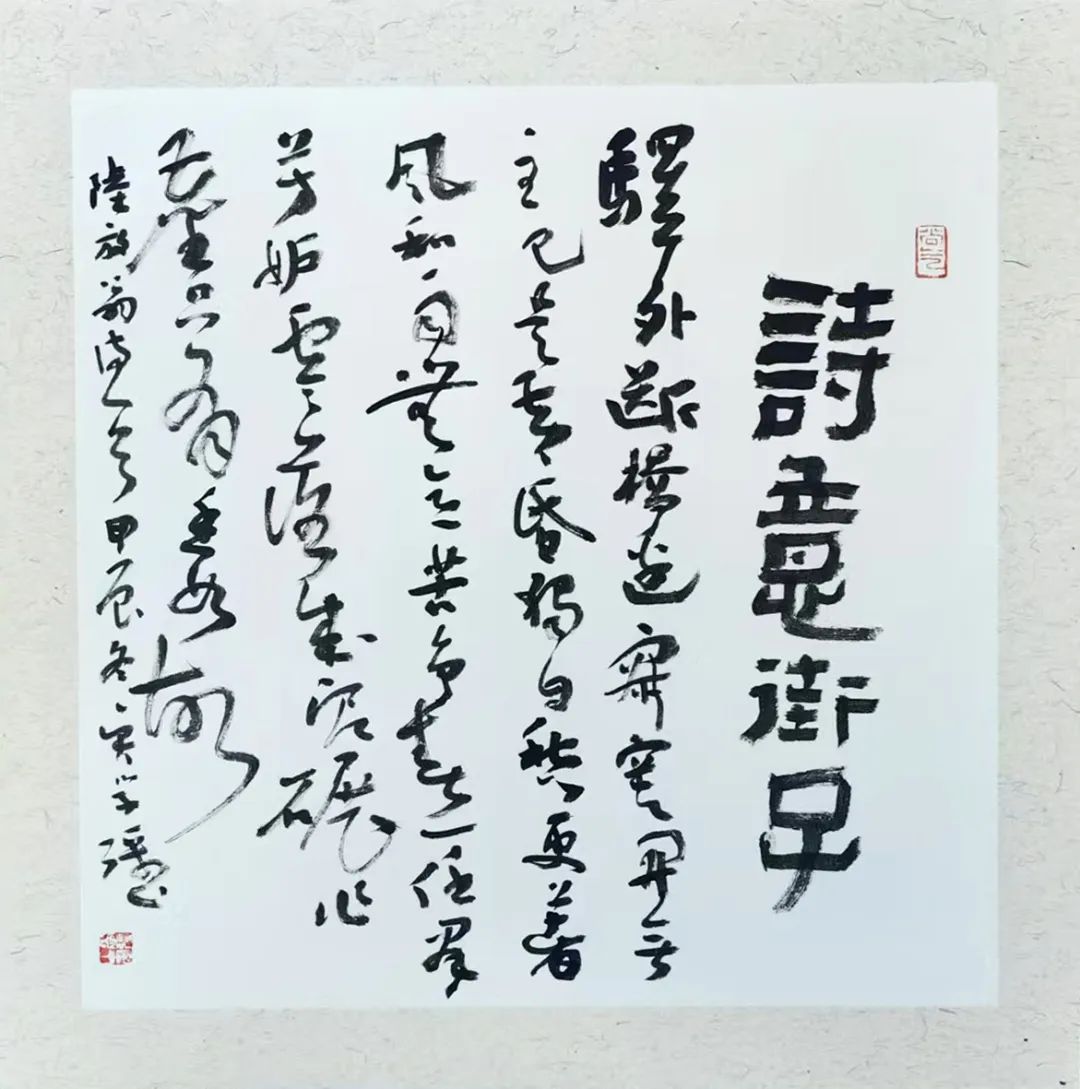 詩意街子
驛外断橋邊寂寞開無
主已是黄昏獨自愁更著
風和雨無意苦争春一任羣
芳妬零落成泥碾作
塵只有香如故
陸放翁詩 甲辰冬